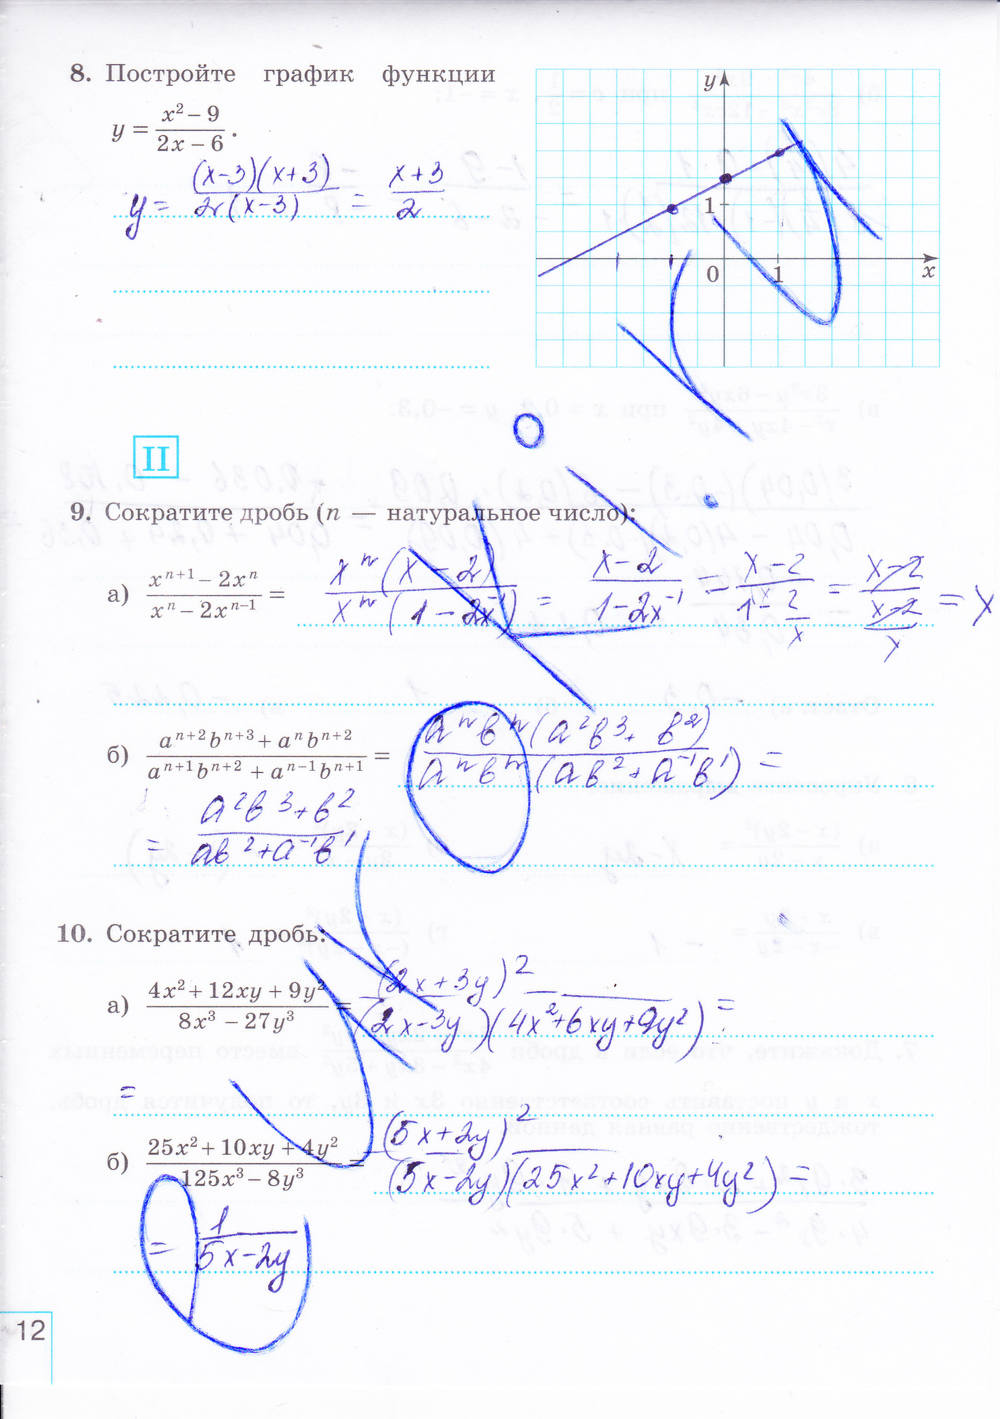 8. Постройте график функции
y = (x² – 9)/(2x – 6).
y = (x-3)(x+3)/2(x-3) = (x+3)/2
y
1
0
1
x
II
9. Сократите дробь (n — натуральное число):
а) (xⁿ⁺¹ – 2xⁿ)/(xⁿ – 2xⁿ⁻¹) = xⁿ(x-2)/xⁿ(1-2x⁻¹) = (x-2)/(1-2x⁻¹) = (x-2)/(1-2/x) = (x-2)/((x-2)/x) = x
б) (aⁿ⁺²bⁿ⁺³ + aⁿbⁿ⁺²)/(aⁿ⁺¹bⁿ⁺² + aⁿ⁻¹bⁿ⁺¹) = aⁿbⁿ(a²b³+b²)/aⁿbⁿ(ab²+a⁻¹b¹) =
= (a²b³+b²)/(ab²+a⁻¹b¹)
10. Сократите дробь:
а) (4x² + 12xy + 9y²)/(8x³ – 27y³) = (2x+3y)²/(2x-3y)(4x²+6xy+9y²) =
=
б) (25x² + 10xy + 4y²)/(125x³ – 8y³) = (5x+2y)²/(5x-2y)(25x²+10xy+4y²) =
= 1/(5x-2y)
12